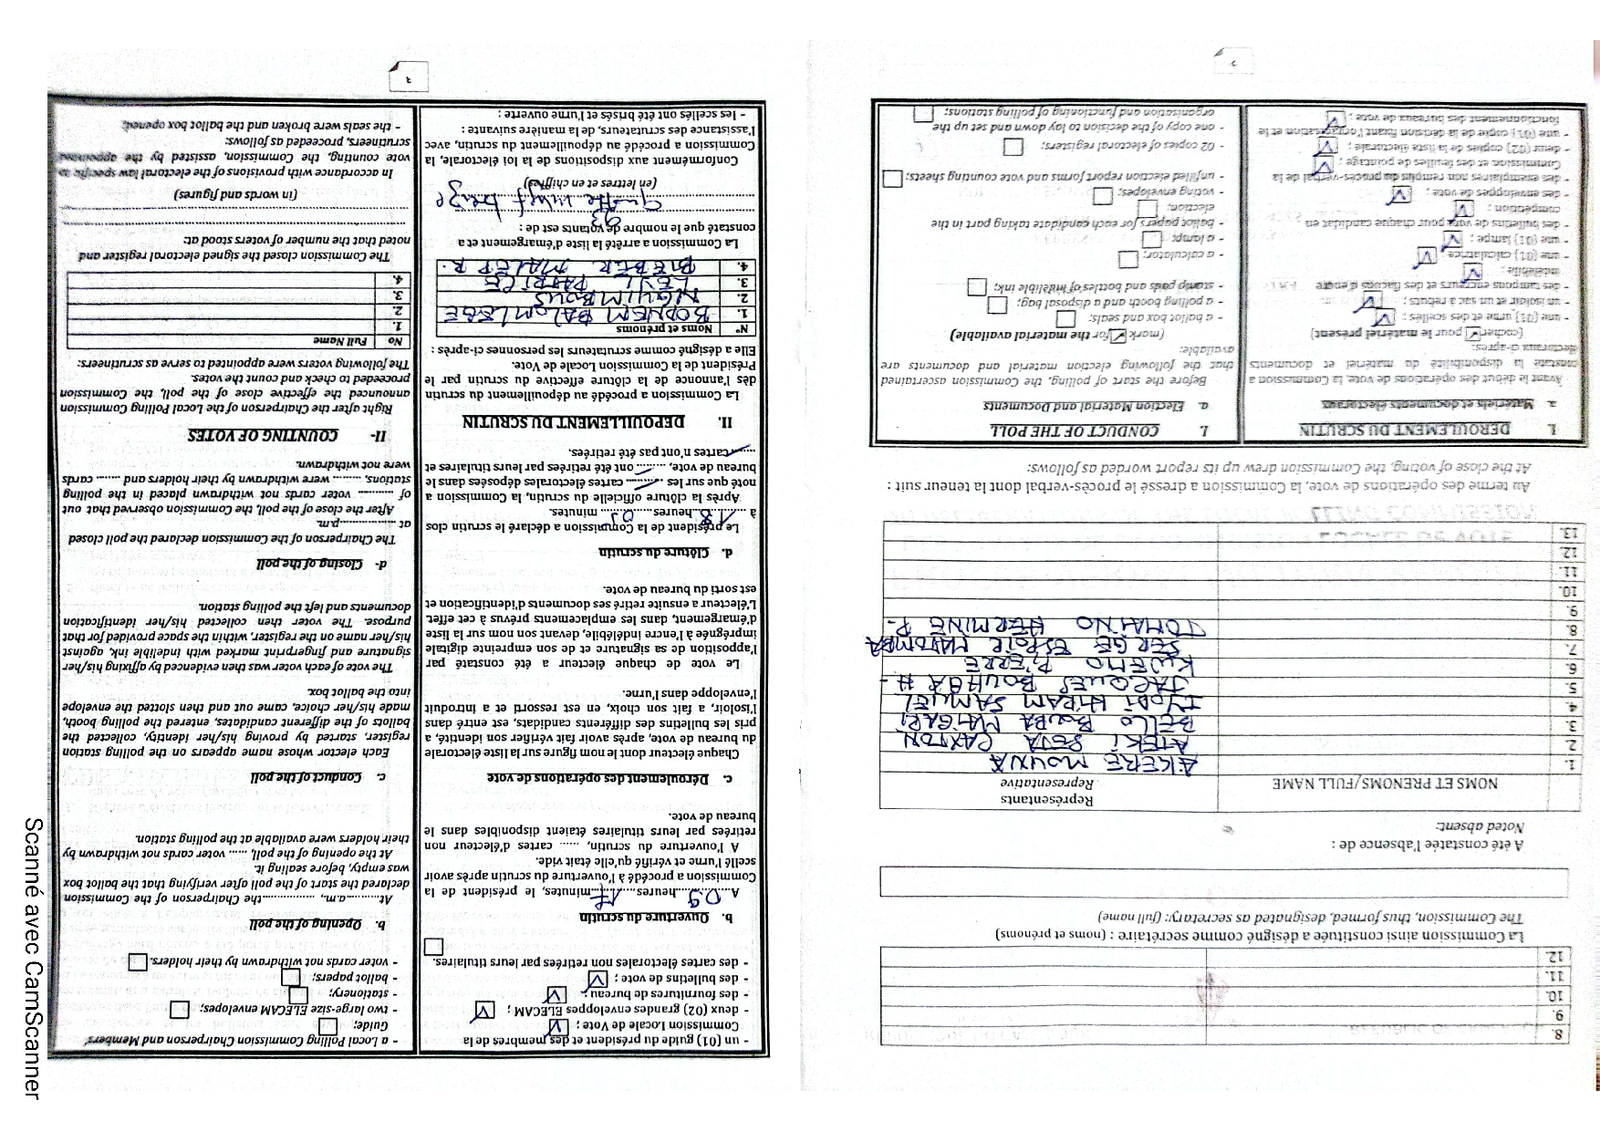 8.
9.
10.
11.
12.
La Commission ainsi constituée a désigné comme secrétaire : (noms et prénoms)
The Commission, thus formed, designated as secretary: (full name)
A été constatée l'absence de :
Noted absent:
NOMS ET PRENOMS/FULL NAME
Représentants
Representative
1. AKERE MOUNA
2. ATEKI SETA CAXTON
3. BELLO BOUBA MAIGARI
4. IYODI HIRAM SAMUEL
5. JACQUES BOUHGA H
6. KWEMO PIERRE
7. SERGE ESPOIR MATOMBA
8. TOMAINO HERMINE P.
9.
10.
11.
12.
13.
Au terme des opérations de vote, la Commission a dressé le procès-verbal dont la teneur suit :
At the close of voting, the Commission drew up its report worded as follows:
I. DEROULEMENT DU SCRUTIN
a. Matériels et documents électoraux
Avant le début des opérations de vote, la Commission a
constaté la disponibilité du matériel et documents
électoraux ci-après:
(cocher pour le matériel présent)
- une (01) urne et des scellés ;
- un isoloir et un sac à rebuts ;
- des tampons encreurs et des flacons d'encre
indélébile ;
- une (01) calculatrice ;
- une (01) lampe ;
- des bulletins de vote pour chaque candidat en
compétition ;
- des enveloppes de vote ;
- des exemplaires non remplis du procès-verbal de la
Commission et des feuilles de pointage ;
- deux (02) copies de la liste électorale ;
- une (01) copie de la décision fixant l'organisation et le
fonctionnement des bureaux de vote ;
I. CONDUCT OF THE POLL
a. Election Material and Documents
Before the start of polling, the Commission ascertained
that the following election material and documents are
available:
(mark for the material available)
- a ballot box and seals;
- a polling booth and a disposal bag;
- stamp pads and bottles of indelible ink;
- a calculator;
- a lamp;
- ballot papers for each candidate taking part in the
election;
- voting envelopes;
- unfilled election report forms and vote counting sheets;
- 02 copies of electoral registers;
- one copy of the decision to lay down and set up the
organisation and functioning of polling stations;
2
- un (01) guide du président et des membres de la
Commission Locale de Vote ;
- deux (02) grandes enveloppes ELECAM ;
- des fournitures de bureau ;
- des bulletins de vote ;
- des cartes électorales non retirées par leurs titulaires.
b. Ouverture du scrutin
A 09 heures 17 minutes, le président de la
Commission a procédé à l'ouverture du scrutin après avoir
scellé l'urne et vérifié qu'elle était vide.
A l'ouverture du scrutin, ...... cartes d'électeur non
retirées par leurs titulaires étaient disponibles dans le
bureau de vote.
c. Déroulement des opérations de vote
Chaque électeur dont le nom figure sur la liste électorale
du bureau de vote, après avoir fait vérifier son identité, a
pris les bulletins des différents candidats, est entré dans
l'isoloir, a fait son choix, en est ressorti et a introduit
l'enveloppe dans l'urne.
Le vote de chaque électeur a été constaté par
l'apposition de sa signature et de son empreinte digitale
imprégnée à l'encre indélébile, devant son nom sur la liste
d'émargement, dans les emplacements prévus à cet effet.
L'électeur a ensuite retiré ses documents d'identification et
est sorti du bureau de vote.
d. Clôture du scrutin
Le président de la Commission a déclaré le scrutin clos
à 18 heures 03 minutes.
Après la clôture officielle du scrutin, la Commission a
noté que sur les ......... cartes électorales déposées dans le
bureau de vote, ......... ont été retirées par leurs titulaires et
......... cartes n'ont pas été retirées.
II. DEPOUILLEMENT DU SCRUTIN
La Commission a procédé au dépouillement du scrutin
dès l'annonce de la clôture effective du scrutin par le
Président de la Commission Locale de Vote.
Elle a désigné comme scrutateurs les personnes ci-après :
N° Noms et prénoms
1. BODNEM BALOMLEGE
2. NGUIMBOUS
3. LEVI PATRICE
4. BIEBER MALEP R.
La Commission a arrêté la liste d'émargement et a
constaté que le nombre de votants est de :
93
quatre vingt treize
(en lettres et en chiffres)
Conformément aux dispositions de la loi électorale, la
Commission a procédé au dépouillement du scrutin, avec
l'assistance des scrutateurs, de la manière suivante :
- les scellés ont été brisés et l'urne ouverte ;
- a Local Polling Commission Chairperson and Members'
Guide;
- two large-size ELECAM envelopes;
- stationery;
- ballot papers;
- voter cards not withdrawn by their holders.
b. Opening of the poll
At............a.m., ..................the Chairperson of the Commission
declared the start of the poll after verifying that the ballot box
was empty, before sealing it.
At the opening of the poll, ...... voter cards not withdrawn by
their holders were available at the polling station.
c. Conduct of the poll
Each elector whose name appears on the polling station
register, started by proving his/her identity, collected the
ballots of the different candidates, entered the polling booth,
made his/her choice, came out and then slotted the envelope
into the ballot box.
The vote of each voter was then evidenced by affixing his/her
signature and fingerprint marked with indelible ink, against
his/her name on the register, within the space provided for that
purpose. The voter then collected his/her identification
documents and left the polling station.
d- Closing of the poll
The Chairperson of the Commission declared the poll closed
at ..................p.m.
After the close of the poll, the Commission observed that out
of ......... voter cards placed in the polling
stations, ......... were withdrawn by their holders and ......... cards
were not withdrawn.
II- COUNTING OF VOTES
Right after the Chairperson of the Local Polling Commission
announced the effective close of the poll, the Commission
proceeded to check and count the votes.
The following voters were appointed to serve as scrutineers:
No Full Name
1.
2.
3.
4.
The Commission closed the signed electoral register and
noted that the number of voters stood at:
(in words and figures)
In accordance with provisions of the electoral law specific to
vote counting, the Commission, assisted by the appointed
scrutineers, proceeded as follows:
- the seals were broken and the ballot box opened;
3
Scanné avec CamScanner